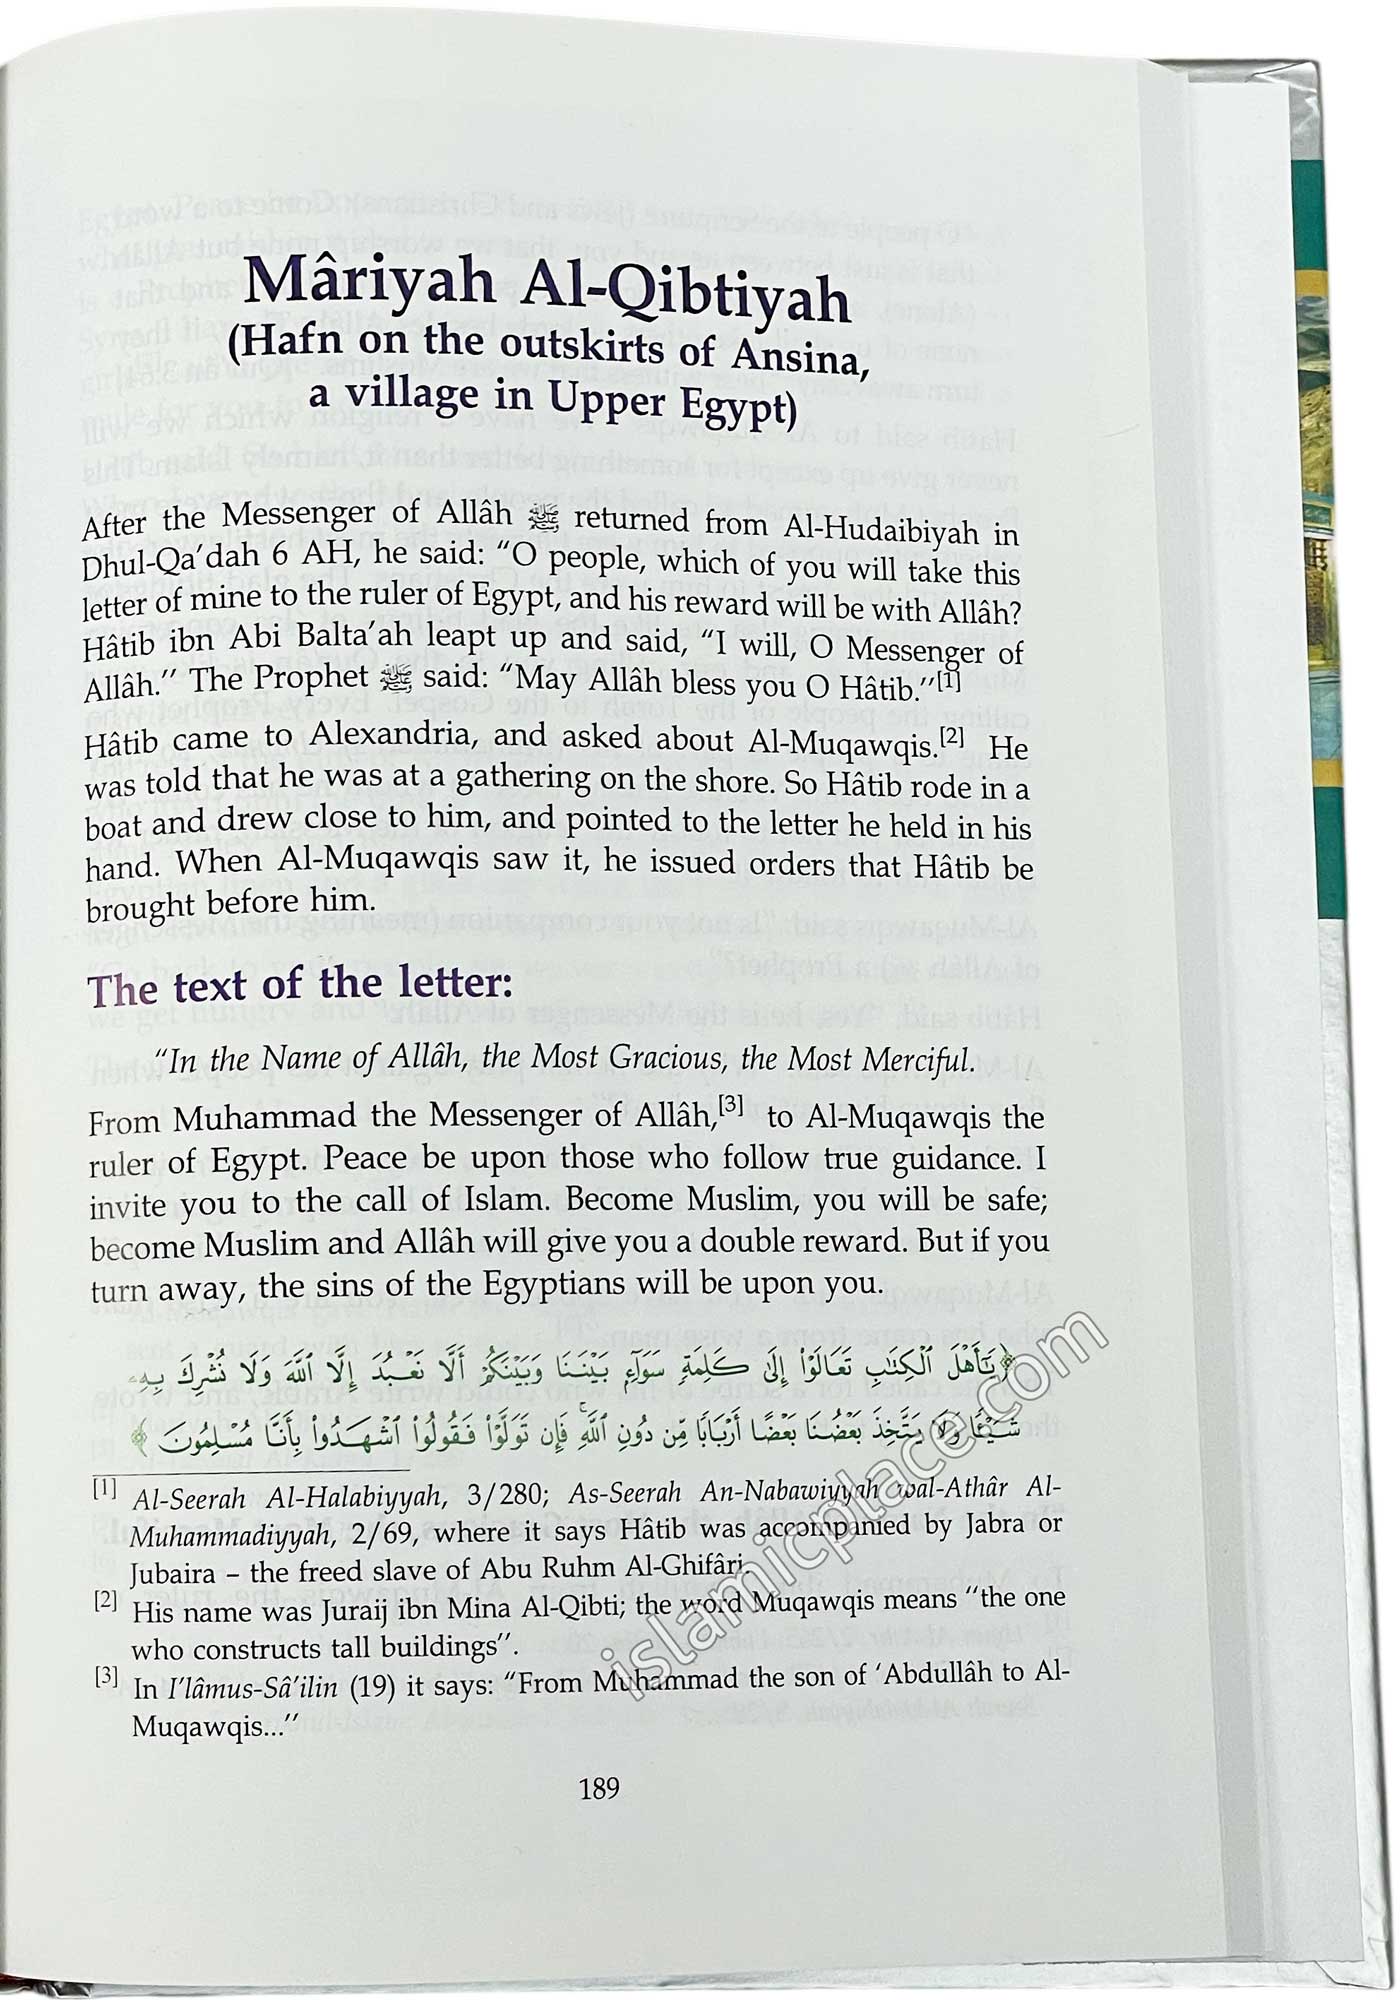 Mâriyah Al-Qibtiyah
(Hafn on the outskirts of Ansina,
a village in Upper Egypt)
After the Messenger of Allâh ﷺ returned from Al-Hudaibiyah in
Dhul-Qa’dah 6 AH, he said: “O people, which of you will take this
letter of mine to the ruler of Egypt, and his reward will be with Allâh?
Hâtib ibn Abi Balta’ah leapt up and said, “I will, O Messenger of
Allâh.” The Prophet ﷺ said: “May Allâh bless you O Hâtib.”[1]
Hâtib came to Alexandria, and asked about Al-Muqawqis.[2] He
was told that he was at a gathering on the shore. So Hâtib rode in a
boat and drew close to him, and pointed to the letter he held in his
hand. When Al-Muqawqis saw it, he issued orders that Hâtib be
brought before him.
The text of the letter:
“In the Name of Allâh, the Most Gracious, the Most Merciful.
From Muhammad the Messenger of Allâh,[3] to Al-Muqawqis the
ruler of Egypt. Peace be upon those who follow true guidance. I
invite you to the call of Islam. Become Muslim, you will be safe;
become Muslim and Allâh will give you a double reward. But if you
turn away, the sins of the Egyptians will be upon you.
﴿يَٰٓأَهْلَ ٱلْكِتَٰبِ تَعَالَوْا۟ إِلَىٰ كَلِمَةٍ سَوَآءٍۭ بَيْنَنَا وَبَيْنَكُمْ أَلَّا نَعْبُدَ إِلَّا ٱللَّهَ وَلَا نُشْرِكَ بِهِۦ
شَيْـًٔا وَلَا يَتَّخِذَ بَعْضُنَا بَعْضًا أَرْبَابًا مِّن دُونِ ٱللَّهِ ۚ فَإِن تَوَلَّوْا۟ فَقُولُوا۟ ٱشْهَدُوا۟ بِأَنَّا مُسْلِمُونَ﴾
[1] Al-Seerah Al-Halabiyyah, 3/280; As-Seerah An-Nabawiyyah wal-Athâr Al-
Muhammadiyyah, 2/69, where it says Hâtib was accompanied by Jabra or
Jubaira – the freed slave of Abu Ruhm Al-Ghifâri.
[2] His name was Juraij ibn Mina Al-Qibti; the word Muqawqis means “the one
who constructs tall buildings”.
[3] In I’lâmus-Sâ’ilin (19) it says: “From Muhammad the son of ‘Abdullâh to Al-
Muqawqis...”
189
islamicplace.com